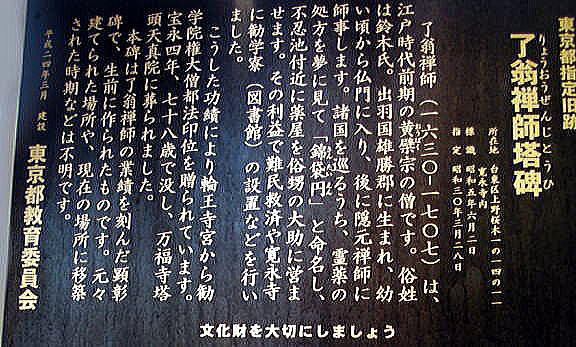 東京都指定旧跡
りょうおうぜんじとうひ
了翁禅師塔碑
所在地 台東区上野桜木一の一四の一一
寛永寺内
標識 昭和五年六月二日
指定 昭和三〇年三月二八日
了翁禅師(一六三〇―一七〇七)は、
江戸時代前期の黄檗宗の僧です。俗姓
は鈴木氏。出羽国雄勝郡に生まれ、幼
い頃から仏門に入り、後に隠元禅師に
師事します。諸国を巡るうち、霊薬の
処方を夢に見て「錦袋円」と命名し、
不忍池付近に薬屋を俗甥の大助に営ま
せます。その利益で難民救済や寛永寺
に勧学寮(図書館)の設置などを行い
ました。
こうした功績により輪王寺宮から勧
学院権大僧都法印位を贈られています。
宝永四年、七十八歳で没し、万福寺塔
頭天真院に葬られました。
本碑は了翁禅師の業績を刻んだ顕彰
碑で、生前に作られたものです。元々
建てられた場所や、現在の場所に移築
された時期などは不明です。
平成二四年三月 建設
東京都教育委員会
文化財を大切にしましょう